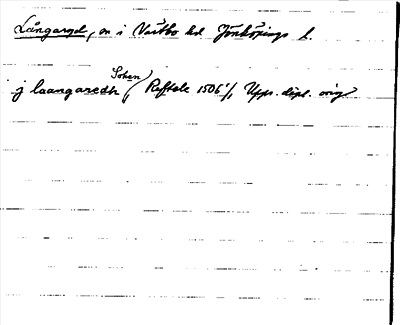 Långaryd, sn i Västbo hd Jönköpings l.
j laangaredh Soken ( Reftele 1506 1/1 Upps. dipl. orig